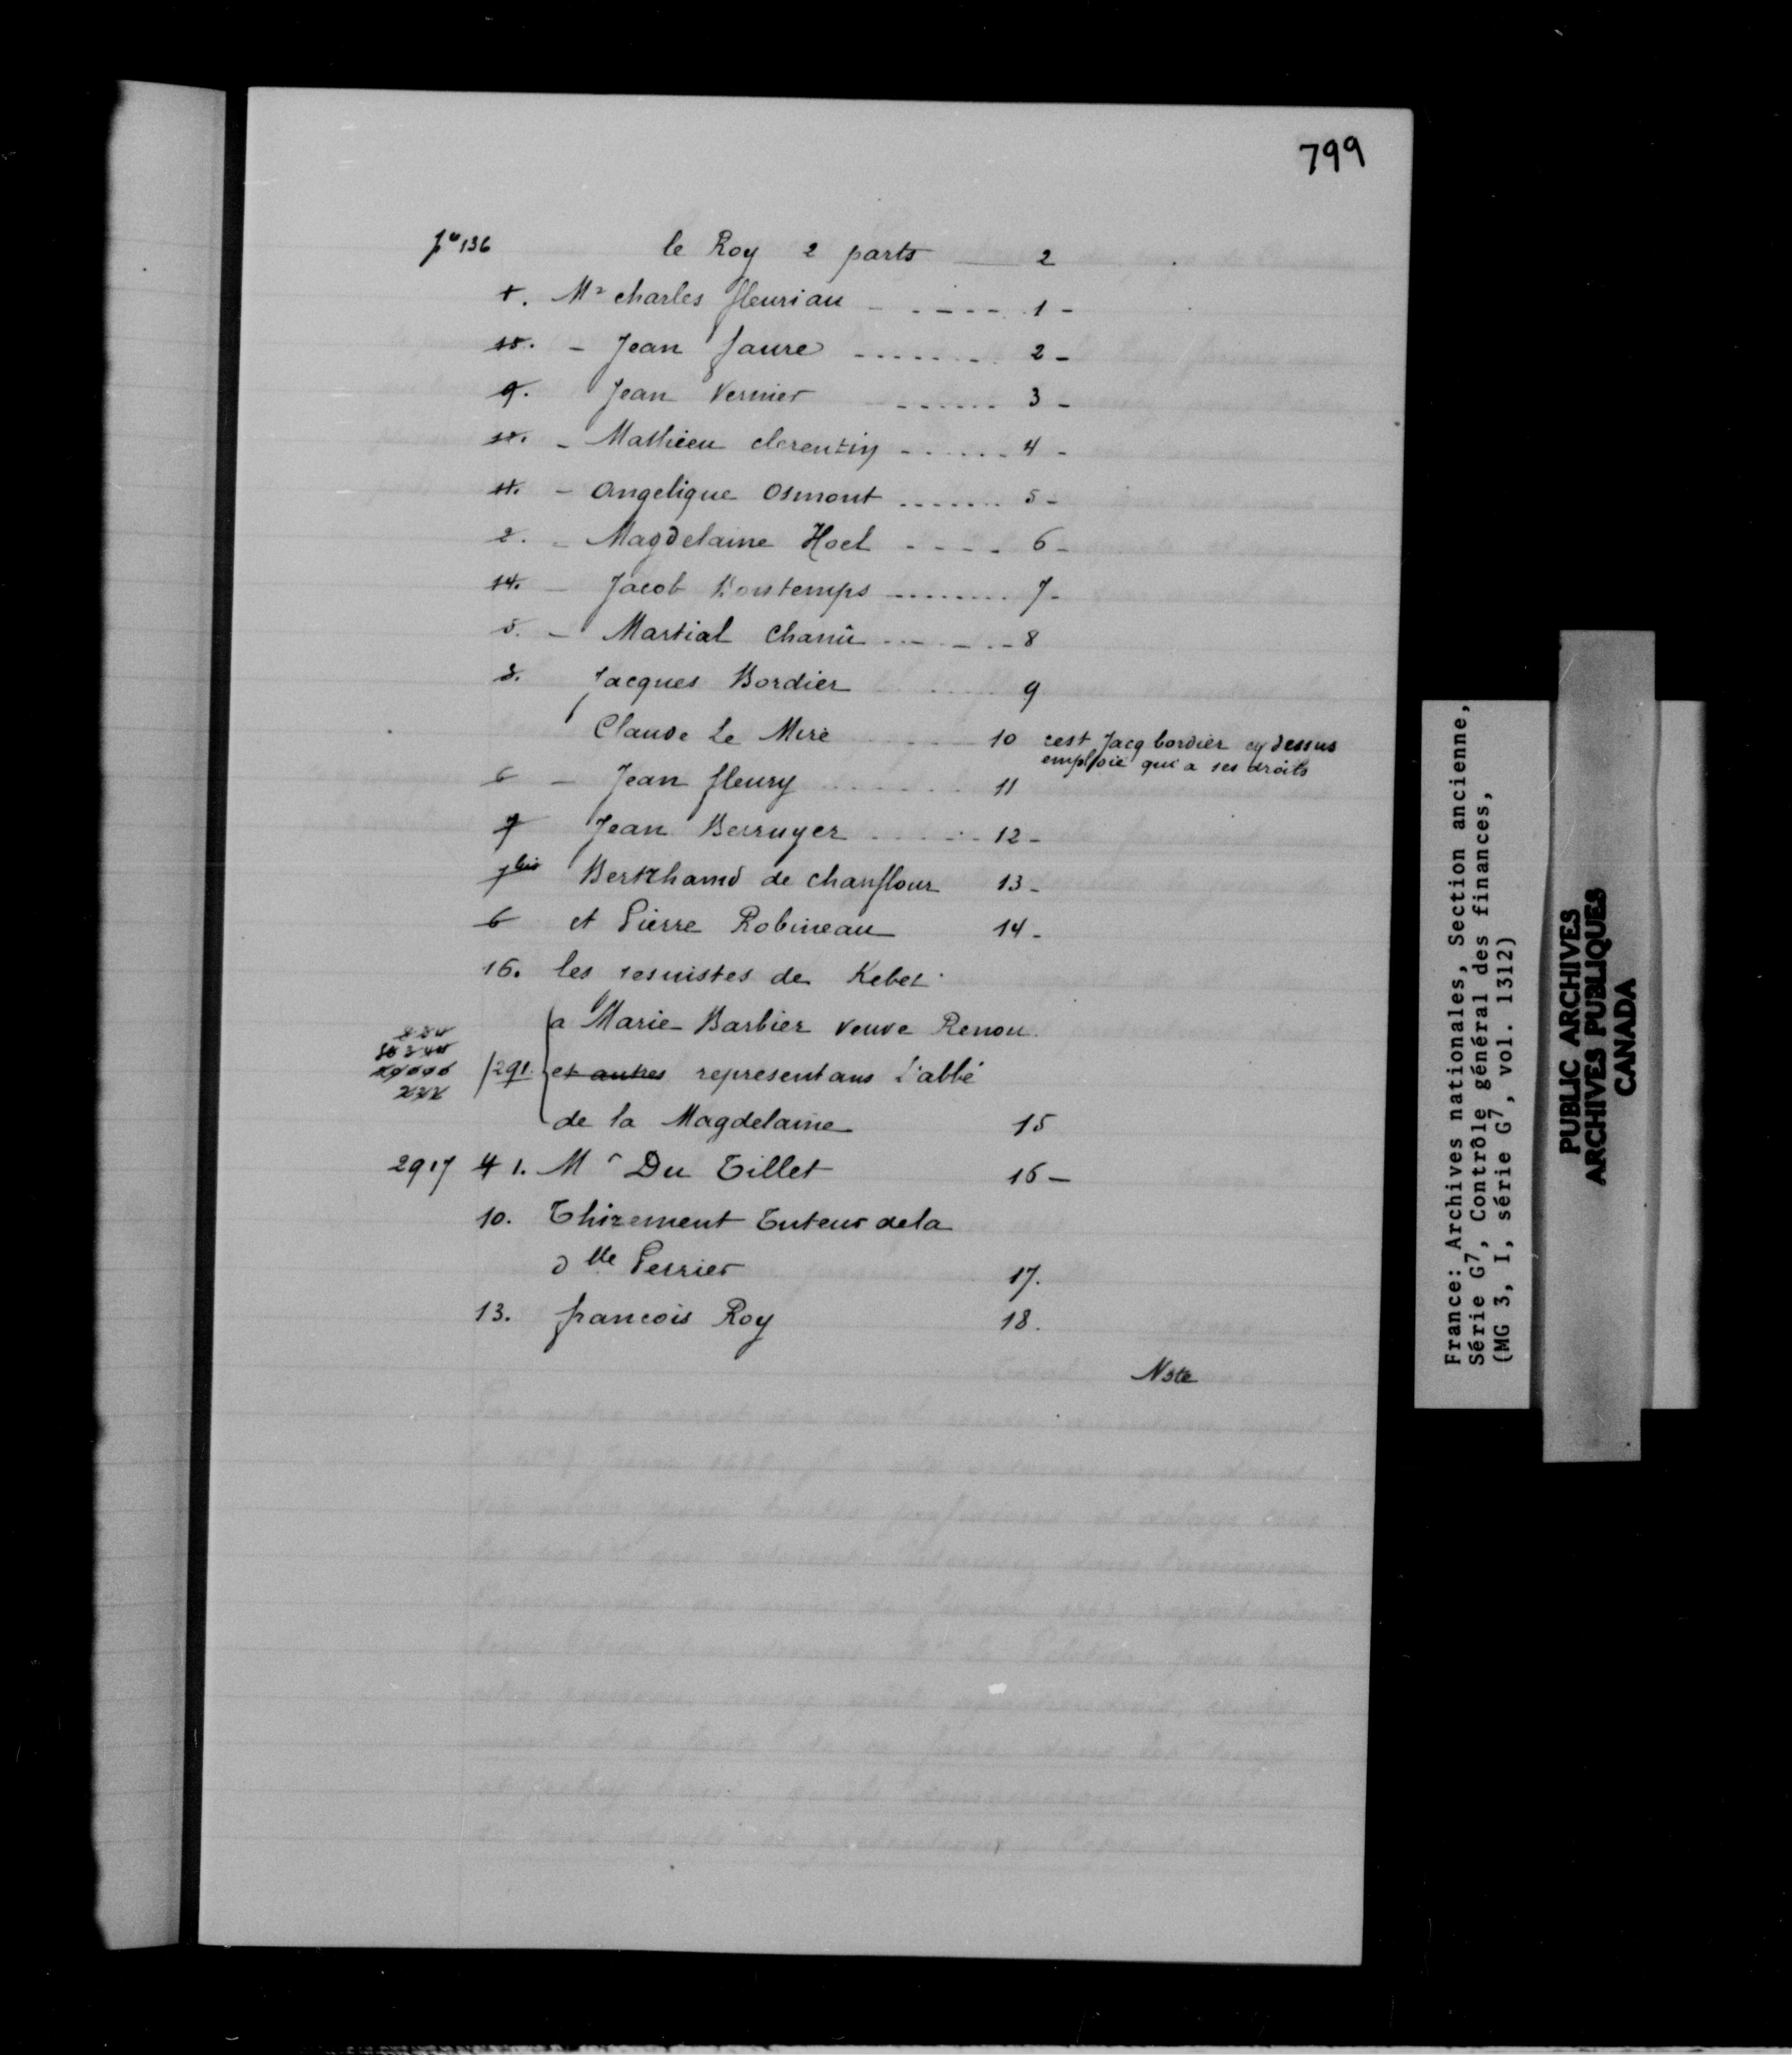 799
fo 136 le Roy 2 parts 2
Mr charles fleuriau 1 -
10. - Jean faure 2 -
9. Jean Vernier 3 -
10. - Mathieu clerentin 4 -
11. - Angelique Osmont 5 -
2. - Magdelaine Hoel 6 -
14. - Jacob Bontemps 7 -
5. - Martial Chanû 8
3. Jacques Bordier 9
Claude Le Mire 10 cest Jacq bordier cy dessus
emploié qui a ses droits
6 - Jean fleury 11
7 Jean Berruyer 12 -
7bis Berthrand de chanflour 13 -
6 et Pierre Robineau 14 -
16. les jesuistes de Kebec
a Marie Barbier veuve Renou
291. et autres representans L'abbé
de la Magdelaine 15
2917 4 1. Mr Du Tillet 16 -
10. Thirement Tuteur dela
dlle Perrier 17.
13. francois Roy 18.
Nota
France: Archives nationales, Section ancienne,
Série G7, Contrôle général des finances,
(MG 3, I, série G7, vol. 1312)
PUBLIC ARCHIVES
ARCHIVES PUBLIQUES
CANADA